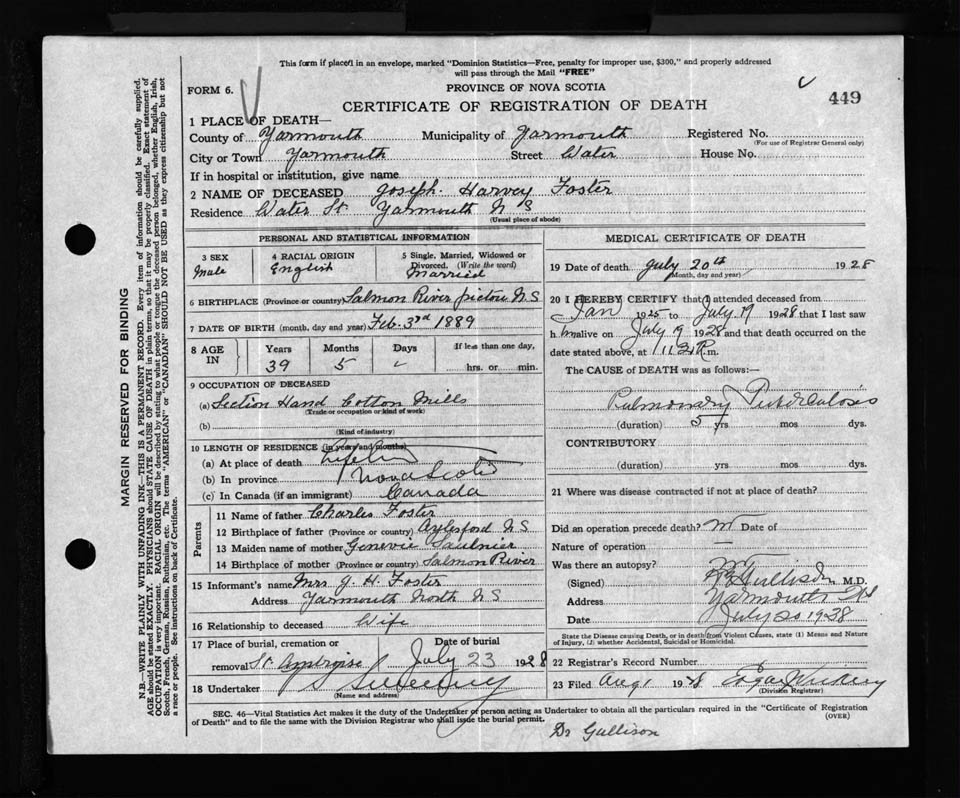 This form if placed in an envelope, marked "Dominion Statistics—Free, penalty for improper use, $300," and properly addressed
will pass through the Mail "FREE"
FORM 6.
PROVINCE OF NOVA SCOTIA
449
CERTIFICATE OF REGISTRATION OF DEATH
1 PLACE OF DEATH—
County of Yarmouth Municipality of Yarmouth Registered No.
(For use of Registrar General only)
City or Town Yarmouth Street Water House No.
If in hospital or institution, give name
2 NAME OF DECEASED Joseph Harvey Foster
Residence Water St Yarmouth N S
(Usual place of abode)
PERSONAL AND STATISTICAL INFORMATION
3 SEX Male
4 RACIAL ORIGIN English
5 Single, Married, Widowed or Divorced. (Write the word) Married
6 BIRTHPLACE (Province or country) Salmon River N S
7 DATE OF BIRTH (month, day and year) Feb. 3rd 1889
8 AGE IN Years 39 Months 5 Days If less than one day, hrs. or min.
9 OCCUPATION OF DECEASED
(a) Section Hand Cotton Mills
(Trade or occupation or kind of work)
(b)
(Kind of industry)
10 LENGTH OF RESIDENCE (in years and months)
(a) At place of death
(b) In province Nova Scotia
(c) In Canada (if an immigrant) Canada
Parents
11 Name of father Charles Foster
12 Birthplace of father (Province or country) Aylesford N S
13 Maiden name of mother Genevie Saulnier
14 Birthplace of mother (Province or country) Salmon River
15 Informant's name Mrs J. H. Foster
Address Yarmouth North N S
16 Relationship to deceased Wife
17 Place of burial, cremation or Date of burial
removal St. Ambroise July 23 1928
18 Undertaker Sweeney
(Name and address)
MEDICAL CERTIFICATE OF DEATH
19 Date of death July 20th 1928
(Month, day and year)
20 I HEREBY CERTIFY that I attended deceased from
Jan 1925 to July 19 1928 that I last saw
h im alive on July 19 1928 and that death occurred on
date stated above, at m.
The CAUSE of DEATH was as follows:—
Pulmonary Tuberculosis
(duration) 5 yrs mos dys.
CONTRIBUTORY
(duration) yrs mos dys.
21 Where was disease contracted if not at place of death?
Did an operation precede death? Date of
Nature of operation —
Was there an autopsy?
(Signed) M.D.
Address Yarmouth N S
Date July 20 1938
State the Disease causing Death, or in death from Violent Causes, state (1) Means and Nature
of Injury, (2) whether Accidental, Suicidal or Homicidal.
22 Registrar's Record Number
23 Filed Aug 1 1928
(Division Registrar)
SEC. 46—Vital Statistics Act makes it the duty of the Undertaker or person acting as Undertaker to obtain all the particulars required in the "Certificate of Registration
of Death" and to file the same with the Division Registrar who shall issue the burial permit.
(OVER)
Dr Gullison
MARGIN RESERVED FOR BINDING
N.B.—WRITE PLAINLY WITH UNFADING INK—THIS IS A PERMANENT RECORD. Every item of information should be carefully supplied.
AGE should be stated EXACTLY. PHYSICIANS should STATE CAUSE OF DEATH in plain terms, so that it may be properly classified. Exact statement of
OCCUPATION is very important. RACIAL ORIGIN will be described by stating to what people or tongue the deceased person belonged, whether English, Irish,
Scotch, French, German, Russian, Ruthenian, etc. The terms "AMERICAN" or "CANADIAN" SHOULD NOT BE USED as they express citizenship but not
a race or people. See instructions on back of Certificate.